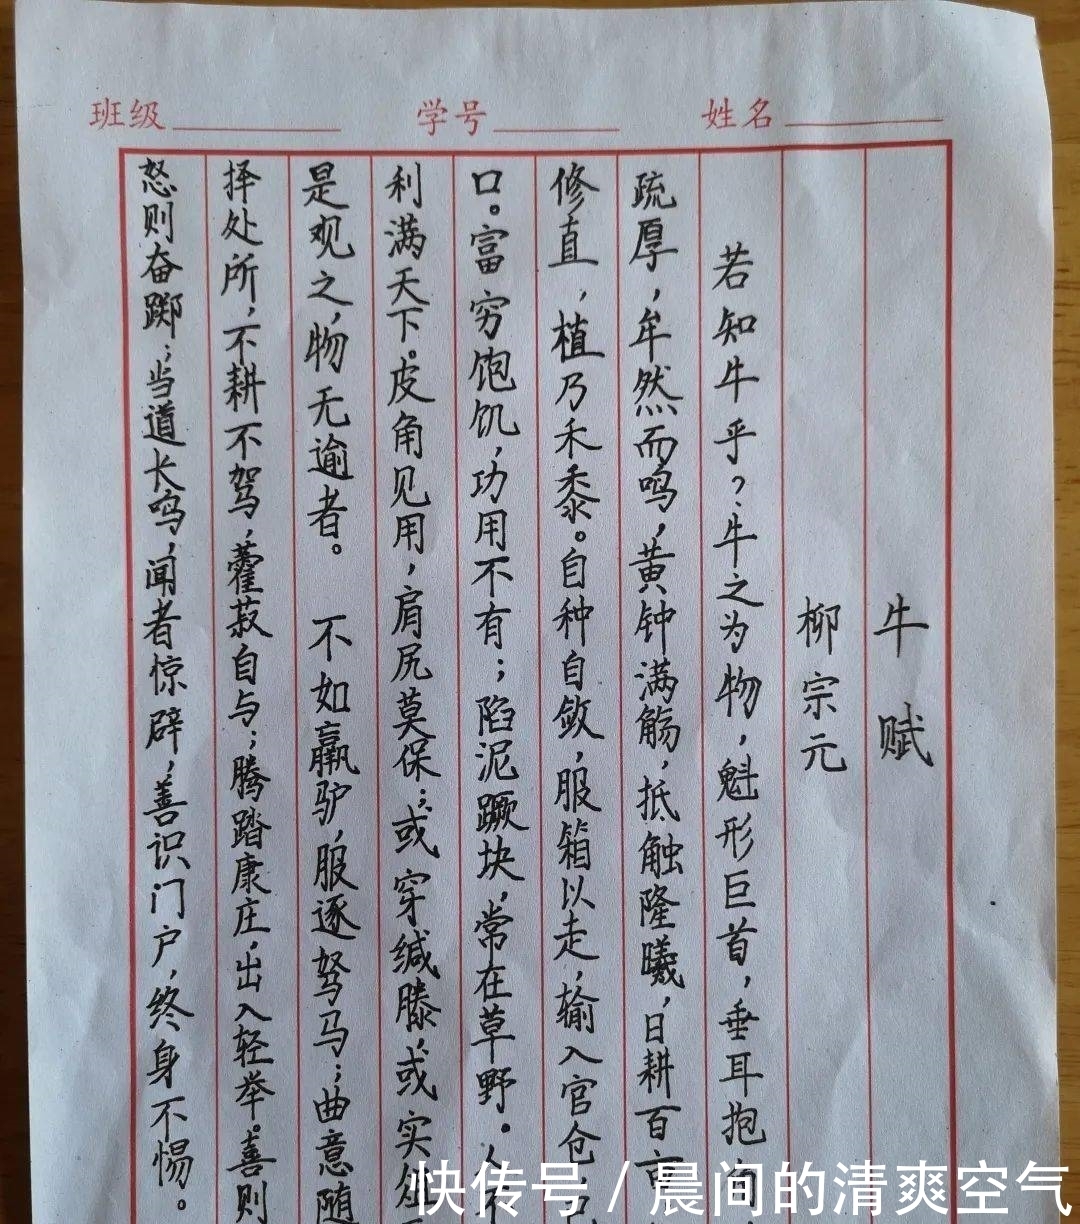 班级 学号 姓名
牛赋
柳宗元
若知牛乎?牛之为物,魁形巨首,垂耳抱
疏厚,牟然而鸣,黄钟满觞,抵触隆曦,日耕百
修直,植乃禾黍。自种自敛,服箱以走,输入官仓,
口。富穷饱饥,功用不有;陷泥蹶块,常在草野。人
利满天下。皮角见用,肩尻莫保;或穿缄滕,或实
是观之,物无逾者。 不如羸驴,服逐驽马;曲意随
择处所,不耕不驾,藿菽自与;腾踏康庄,出入轻举。喜则
怒则奋踯;当道长鸣,闻者惊辟,善识门户,终身不惕。
快传号 / 晨间的清爽空气